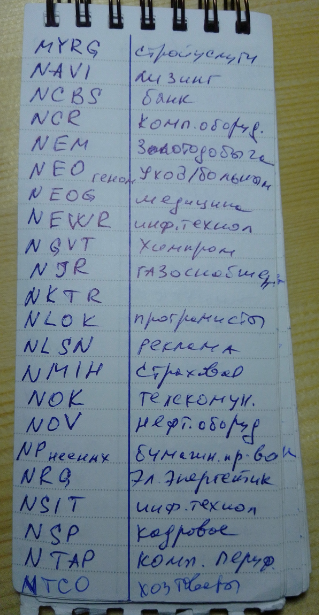 MYRG стройуслуги
NAVI лизинг
NCBS банк
NCR комп.оборуд.
NEM Золотодобыча
NEO геном Уход/больным
NEOG медицина
NEWR инф.технол
NGVT химпром
NJR газоснабжен
NKTR
NLOK программисты
NLSN реклама
NMIH страховая
NOK телекомун.
NOV нефт.оборуд
NP неенах бумажн.пр-во
NRG Эл.энергетик
NSIT инф.технол
NSP кадровое
NTAP комп. периф.
NTCO хозтовары